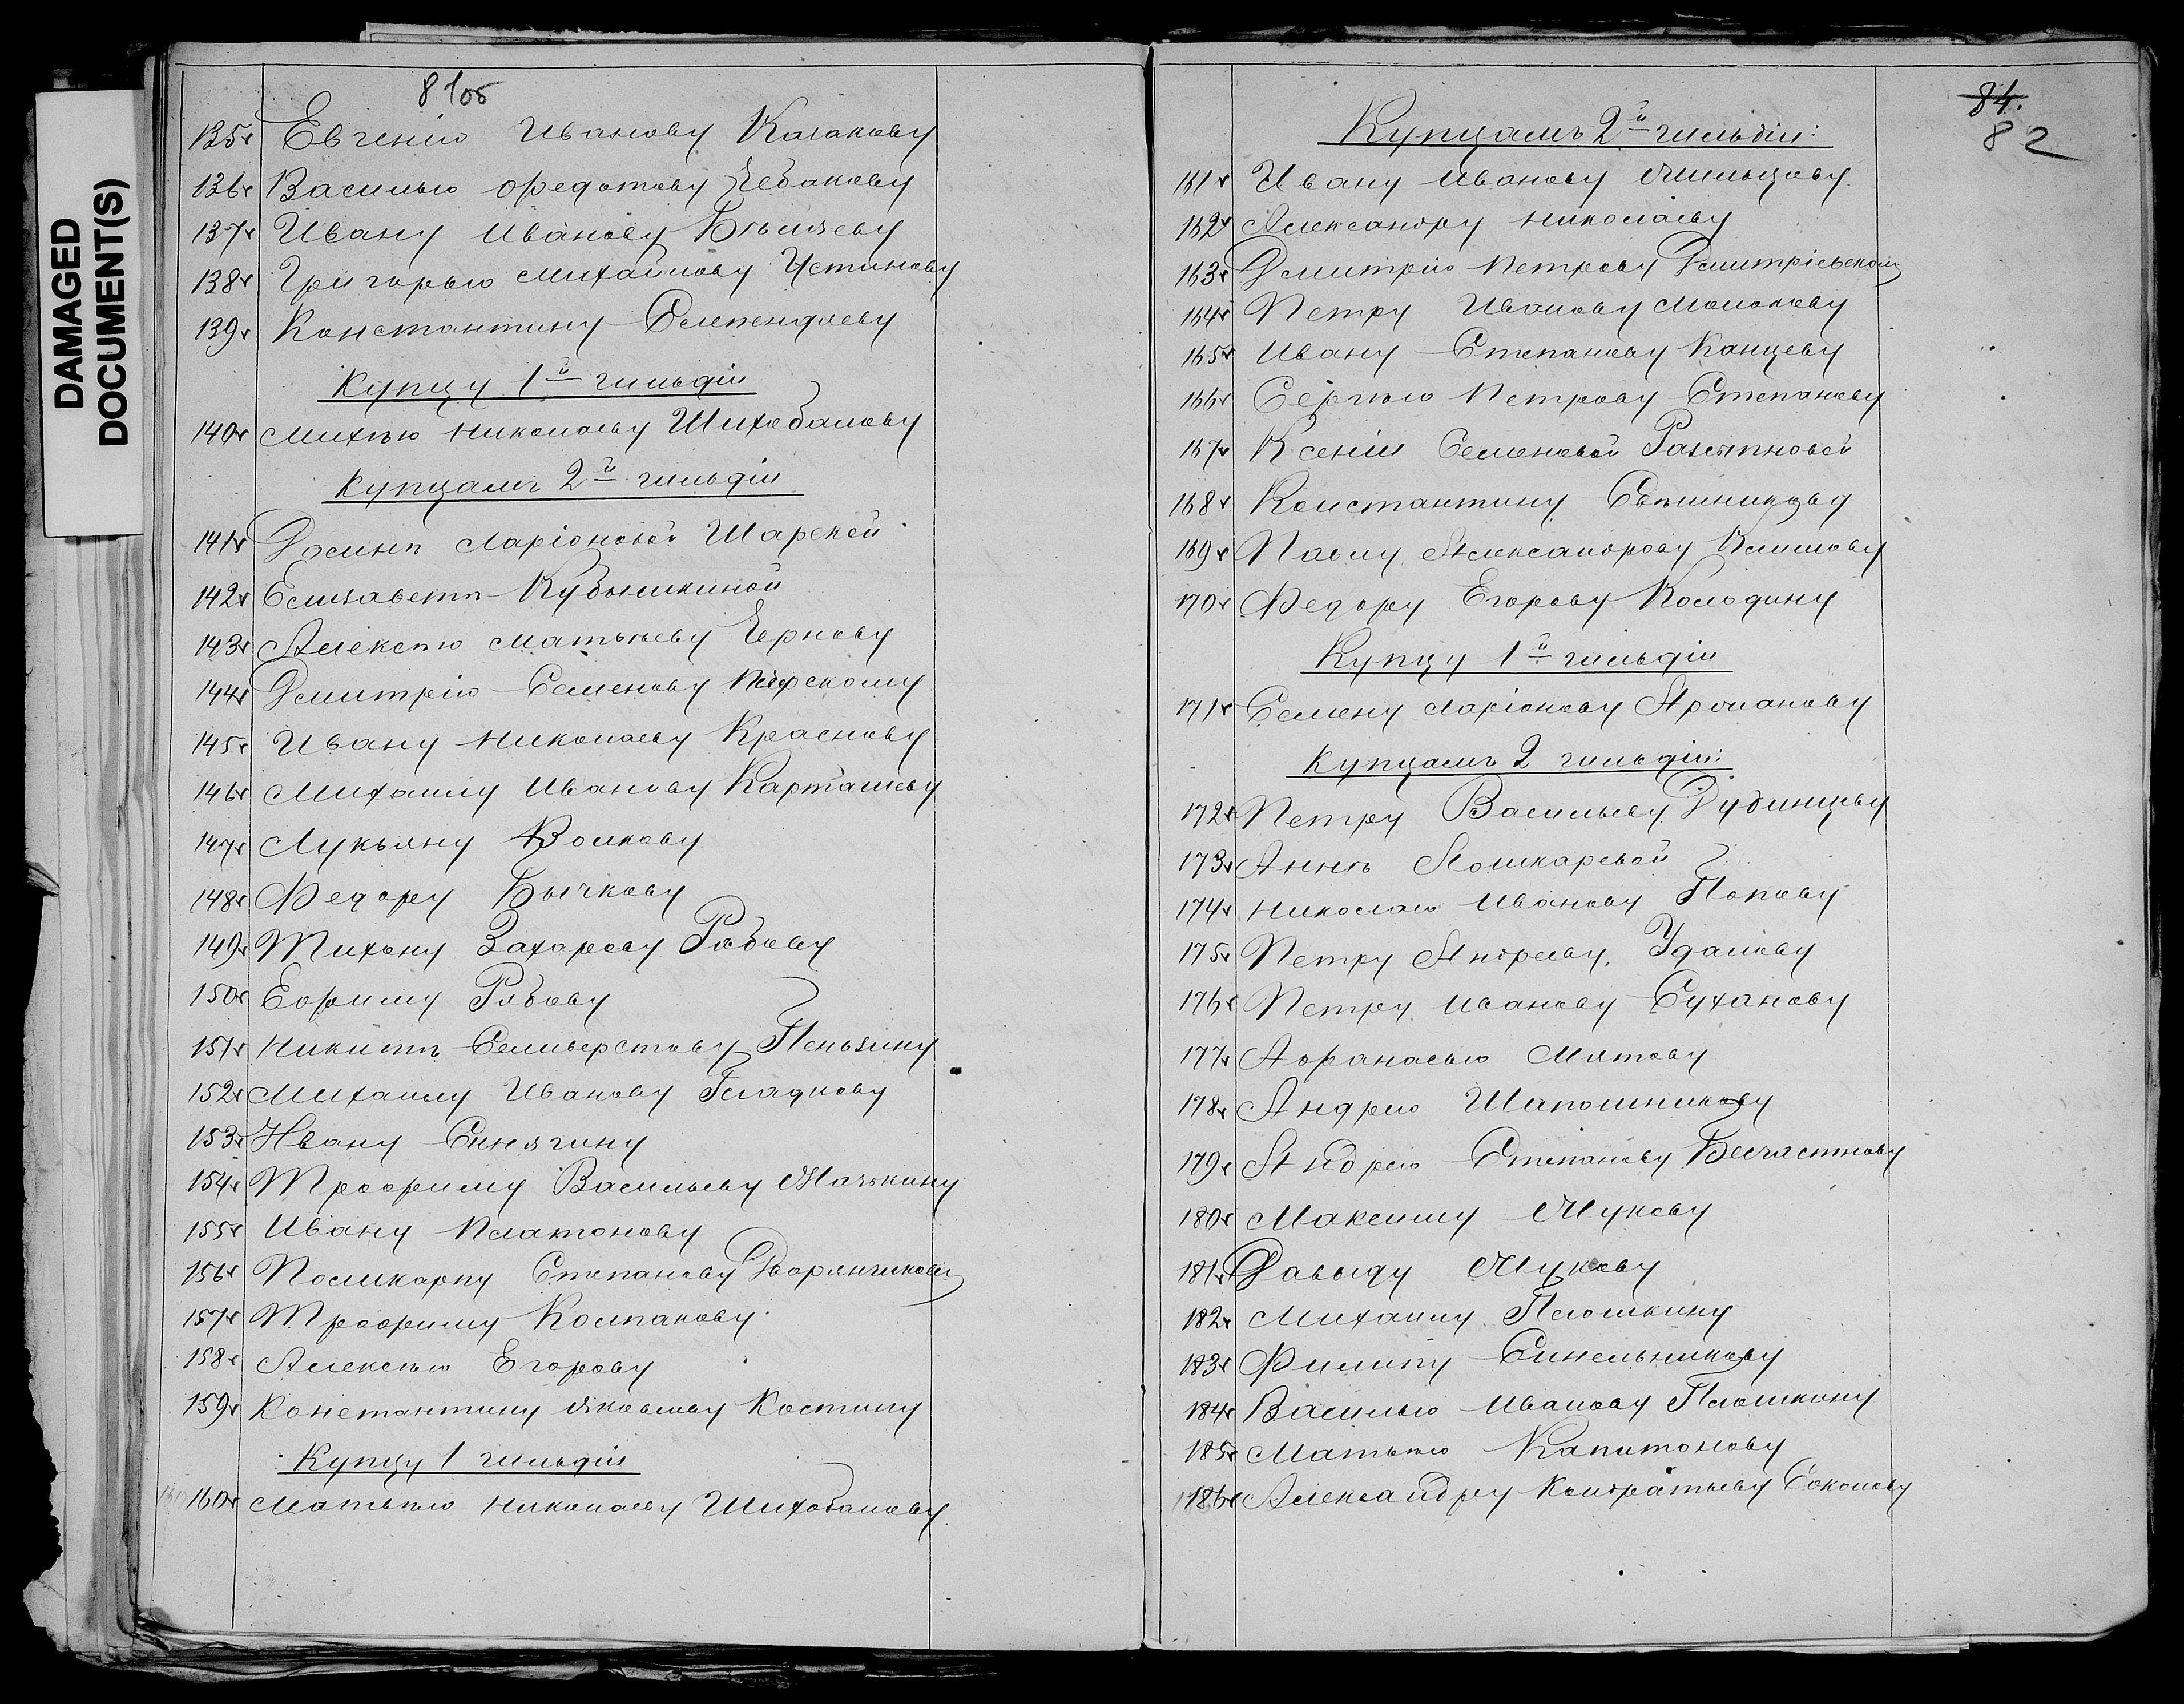 DAMAGED
DOCUMENT(S)
81об
135 Евгенію Иванову Казакову
136 Василью Федотову Чебакову
137 Ивану Иванову
138 Григорью Михайлову Устинову
139 Константину Селепендяеву
Купцу 1й гильдіи
140 Михѣю Николаеву Шихобалову
Купцамъ 2й гильдіи
141 Домнѣ Ларіоновой Шарской
142 Елизаветѣ Кубышкиной
143 Алексѣю Матвѣеву Чернову
144 Дмитрію Семенову
145 Ивану Николаеву Краснову
146 Михаилу Иванову Карташеву
147 Лукьяну Волкову
148 Федору Бычкову
149 Тихону Захарову Рябову
150 Ефиму Рябову
151 Никитѣ Селиверстову Пеньзину
152 Михаилу Иванову Гладкову
153 Ивану Синягину
154 Трофиму Васильеву Мачкину
155 Ивану Платонову
156 Поликарпу Степанову Дворянчикову
157 Трофиму Колпакову
158 Алексѣю Егорову
159 Константину Яковлеву Костину
Купцу 1 гильдіи
160 160 Матвѣю Николаеву Шихобалову
84.
82
Купцамъ 2й гильдіи:
161 Ивану Иванову Мильцову
162 Александру Николаеву
163 Дмитрію Петрову Дмитріевскому
164 Петру Иванову Молокову
165 Ивану Степанову Канцеву
166 Сергѣю Петрову Степанову
167 Ксеніи Семеновой
168 Константину Свѣшникову
169 Павлу Александрову Климову
170 Федору Егорову Колодину
Купцу 1й гильдіи
171 Семену Ларіонову Аржанову
Купцамъ 2 гильдіи:
172 Петру Васильеву Дубинцеву
173 Аннѣ Пошкаревой
174 Николаю Иванову Попову
175 Петру Андрееву Удалову
176 Петру Иванову Суханову
177 Афанасью Мятову
178 Андрею Шапошникову
179 Андрею Степанову Безчастнову
180 Максиму Жукову
181 Давыду Жукову
182 Михаилу Плюшкину
183 Филипу Синельникову
184 Василью Иванову Плюшкину
185 Матвѣю Капитонову
186 Александру Кондратьеву Соколову